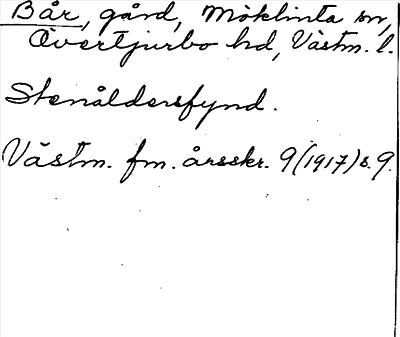 Bår, gård, Möklinta sn,
Övertjurbo hd, Västm. l.
Stenåldersfynd.
Västm. fm. årsskr. 9 (1917) s. 9.